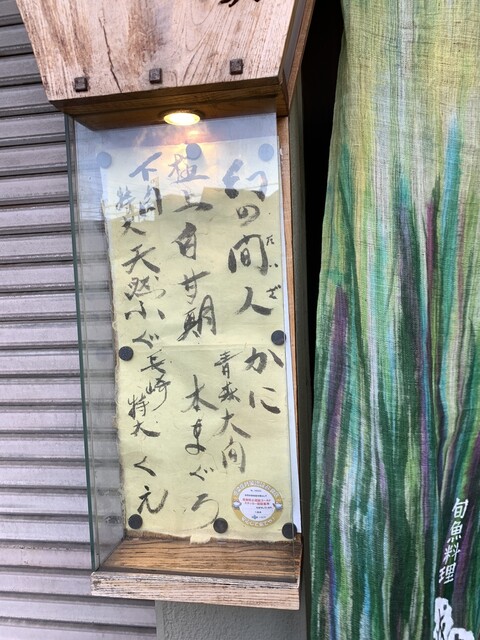 幻の間人かに
たいざ
極上白甘鯛
青森大間
本まぐろ
下関
特大天然ふぐ
長崎
特大くえ
旬魚料理